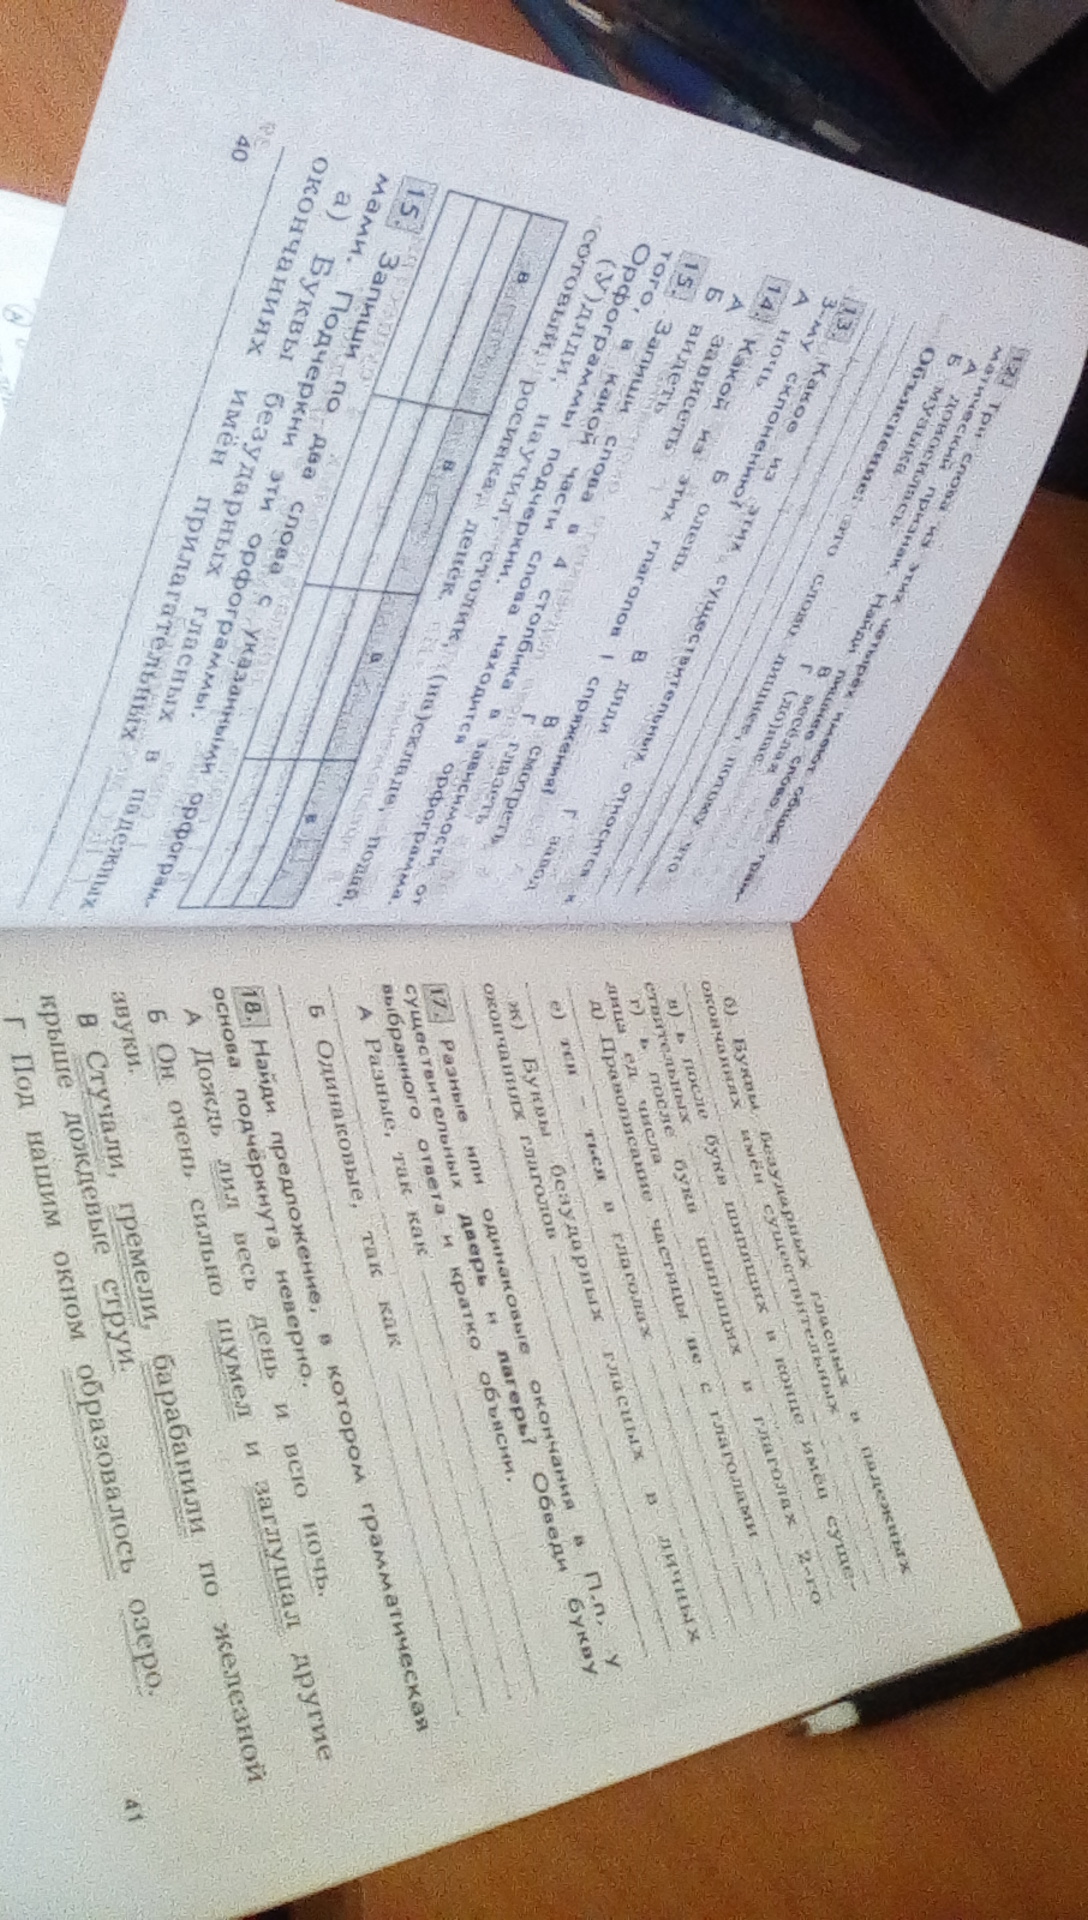 12. Три слова из этих четырёх имеют общий грам-
матический признак. Найди лишнее слово.
А доносились В весёлая
Б музыка Г (до)нас
Объяснение: это слово лишнее, потому что
13. Какое из этих существительных относится к
3-му склонению?
А ночь Б олень В дядя Г завод
14. Какой из этих глаголов I спряжения?
А зависеть В гладеть
Б видеть Г смотреть
15. Запиши слова в 4 столбика в зависимости от
того, в какой части слова находится орфограмма.
Орфограммы подчеркни.
(У)дяди, научил, столик, (на)складе, поций,
сютовый, росинка, денёк.
в в в в
15. Запиши по два слова с указанными орфограм-
мами. Подчеркни эти орфограммы.
а) Буквы безударных гласных в падежных
окончаниях имён прилагательных
40
б) Буквы безударных гласных в падежных
окончаниях имён существительных
в) ь после букв шипящих в конце имён суще-
ствительных
г) ь после букв шипящих в глаголах 2-го
лица ед. числа
д) Правописание частицы не с глаголами
е) тся – ться в глаголах
ж) Буквы безударных гласных в личных
окончаниях глаголов
17. Разные или одинаковые окончания в П.п. у
существительных дверь и лагерь? Обведи букву
выбранного ответа и кратко объясни.
А Разные, так как
Б Одинаковые, так как
18. Найди предложение, в котором грамматическая
основа подчёркнута неверно.
А Дождь лил весь день и всю ночь.
Б Он очень сильно шумел и заглушал другие
звуки.
В Стучали, гремели, барабанили по железной
крыше дождевые струи.
Г Под нашим окном образовалось озеро.
41